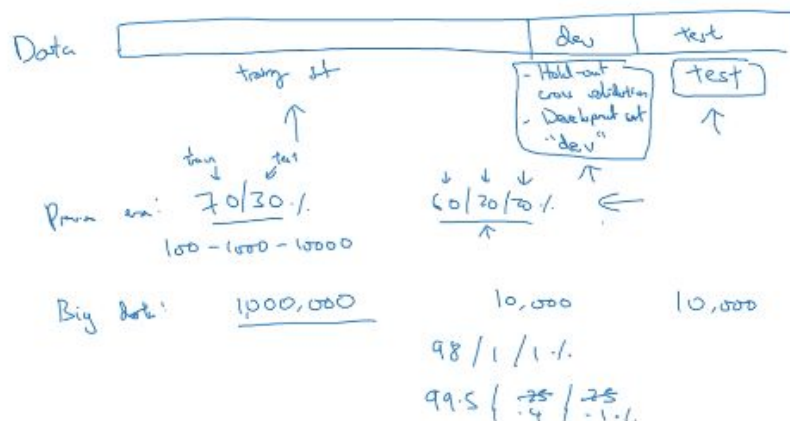 Data
dev
test
training set
- Hold-out
cross validation
- Development set
"dev"
test
train
test
Previous era: 70/30 %
60/20/20 %
100 - 1000 - 10000
Big data: 1,000,000
10,000
10,000
98 / 1 / 1 %
99.5 / .25 / .25
.4 / .1 %